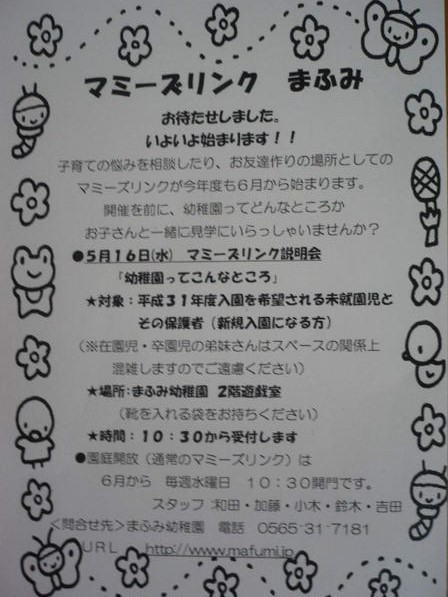 マミーズリンク　まふみ
お待たせしました。
いよいよ始まります！！
子育ての悩みを相談したり、お友達作りの場所としての
マミーズリンクが今年度も６月から始まります。
開催を前に、幼稚園ってどんなところか
お子さんと一緒に見学にいらっしゃいませんか？
●５月１６日(水)　マミーズリンク説明会
「幼稚園ってこんなところ」
★対象：平成３１年度入園を希望される未就園児と
その保護者（新規入園になる方）
（※在園児・卒園児の弟妹さんはスペースの関係上
混雑しますのでご遠慮ください）
★場所：まふみ幼稚園　２階遊戯室
（靴を入れる袋をお持ちください）
★時間：１０：３０から受付します
●園庭開放（通常のマミーズリンク）は
６月から　毎週水曜日　１０：３０開門です。
スタッフ：和田・加藤・小木・鈴木・吉田
＜問合せ先＞まふみ幼稚園　電話　0565-31-7181
ＵＲＬ　http://www.mafumi.jp